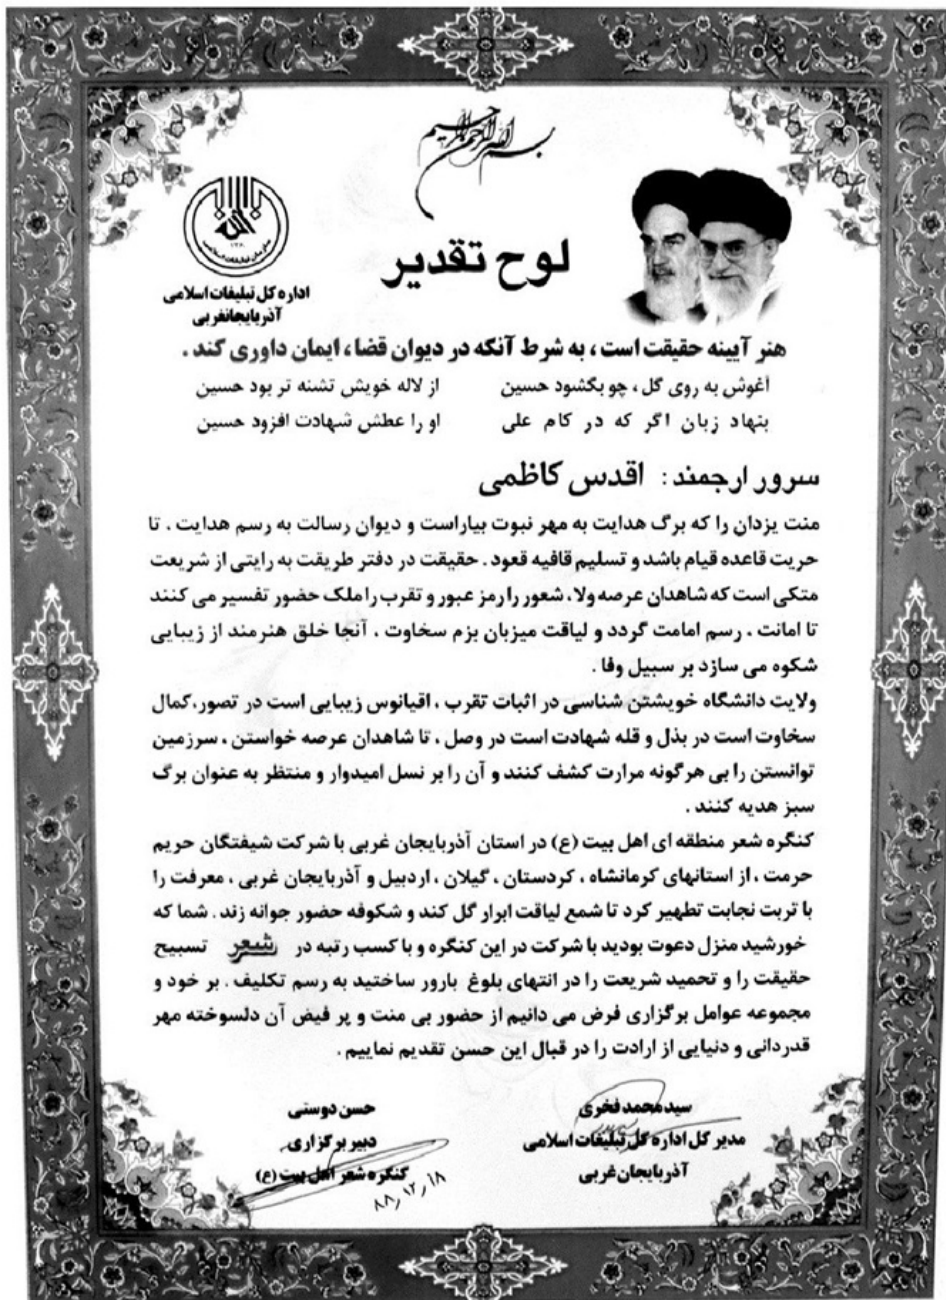 بسم الله الرحمن الرحیم
لوح تقدیر
۱۳۶۰
سازمان تبلیغات اسلامی
اداره کل تبلیغات اسلامی
آذربایجانغربی
هنر آیینه حقیقت است ، به شرط آنکه در دیوان قضا ، ایمان داوری کند .
آغوش به روی گل ، چو بگشود حسین از لاله خویش تشنه تر بود حسین
بنهاد زبان اگر که در کام علی او را عطش شهادت افزود حسین
سرور ارجمند : اقدس کاظمی
منت یزدان را که برگ هدایت به مهر نبوت بیاراست و دیوان رسالت به رسم هدایت ، تا
حریت قاعده قیام باشد و تسلیم قافیه قعود . حقیقت در دفتر طریقت به رایتی از شریعت
متکی است که شاهدان عرصه ولا، شعور را رمز عبور و تقرب را ملک حضور تفسیر می کنند
تا امانت ، رسم امامت گردد و لیاقت میزبان بزم سخاوت ، آنجا خلق هنرمند از زیبایی
شکوه می سازد بر سبیل وفا .
ولایت دانشگاه خویشتن شناسی در اثبات تقرب ، اقیانوس زیبایی است در تصور،کمال
سخاوت است در بذل و قله شهادت است در وصل ، تا شاهدان عرصه خواستن ، سرزمین
توانستن را بی هرگونه مرارت کشف کنند و آن را بر نسل امیدوار و منتظر به عنوان برگ
سبز هدیه کنند .
کنگره شعر منطقه ای اهل بیت (ع) در استان آذربایجان غربی با شرکت شیفتگان حریم
حرمت ، از استانهای کرمانشاه ، کردستان ، گیلان ، اردبیل و آذربایجان غربی ، معرفت را
با تربت نجابت تطهیر کرد تا شمع لیاقت ابرار گل کند و شکوفه حضور جوانه زند . شما که
خورشید منزل دعوت بودید با شرکت در این کنگره و با کسب رتبه در شعر تسبیح
حقیقت را و تحمید شریعت را در انتهای بلوغ بارور ساختید به رسم تکلیف ، بر خود و
مجموعه عوامل برگزاری فرض می دانیم از حضور بی منت و پر فیض آن دلسوخته مهر
قدردانی و دنیایی از ارادت را در قبال این حسن تقدیم نماییم .
سیدمحمدفخری
مدیر کل اداره کل تبلیغات اسلامی
آذربایجان غربی
حسن دوستی
دبیر برگزاری
کنگره شعر اهل بیت (ع)
۸۸٫۱۲٫۱۸